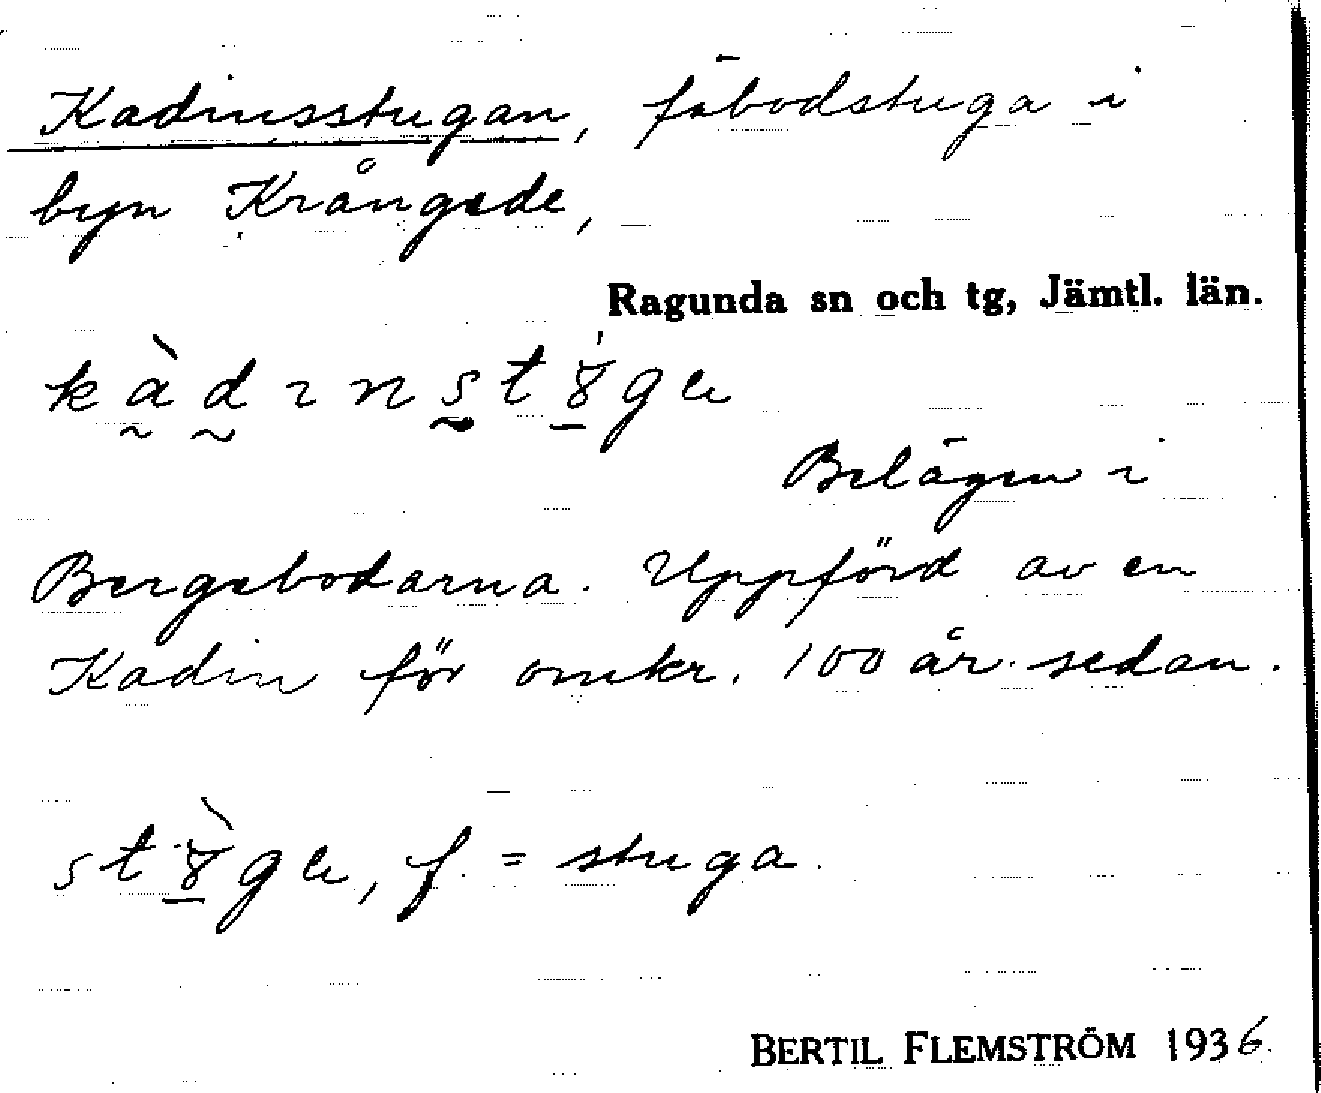 Kadinsstugan, fäbodstuga i
byn Krångede,
Ragunda sn och tg, Jämtl. län.
Belägen i
Bergebodarna. Uppförd av en
Kadin för omkr. 100 år sedan.
f. = stuga.
BERTIL FLEMSTRÖM 1936